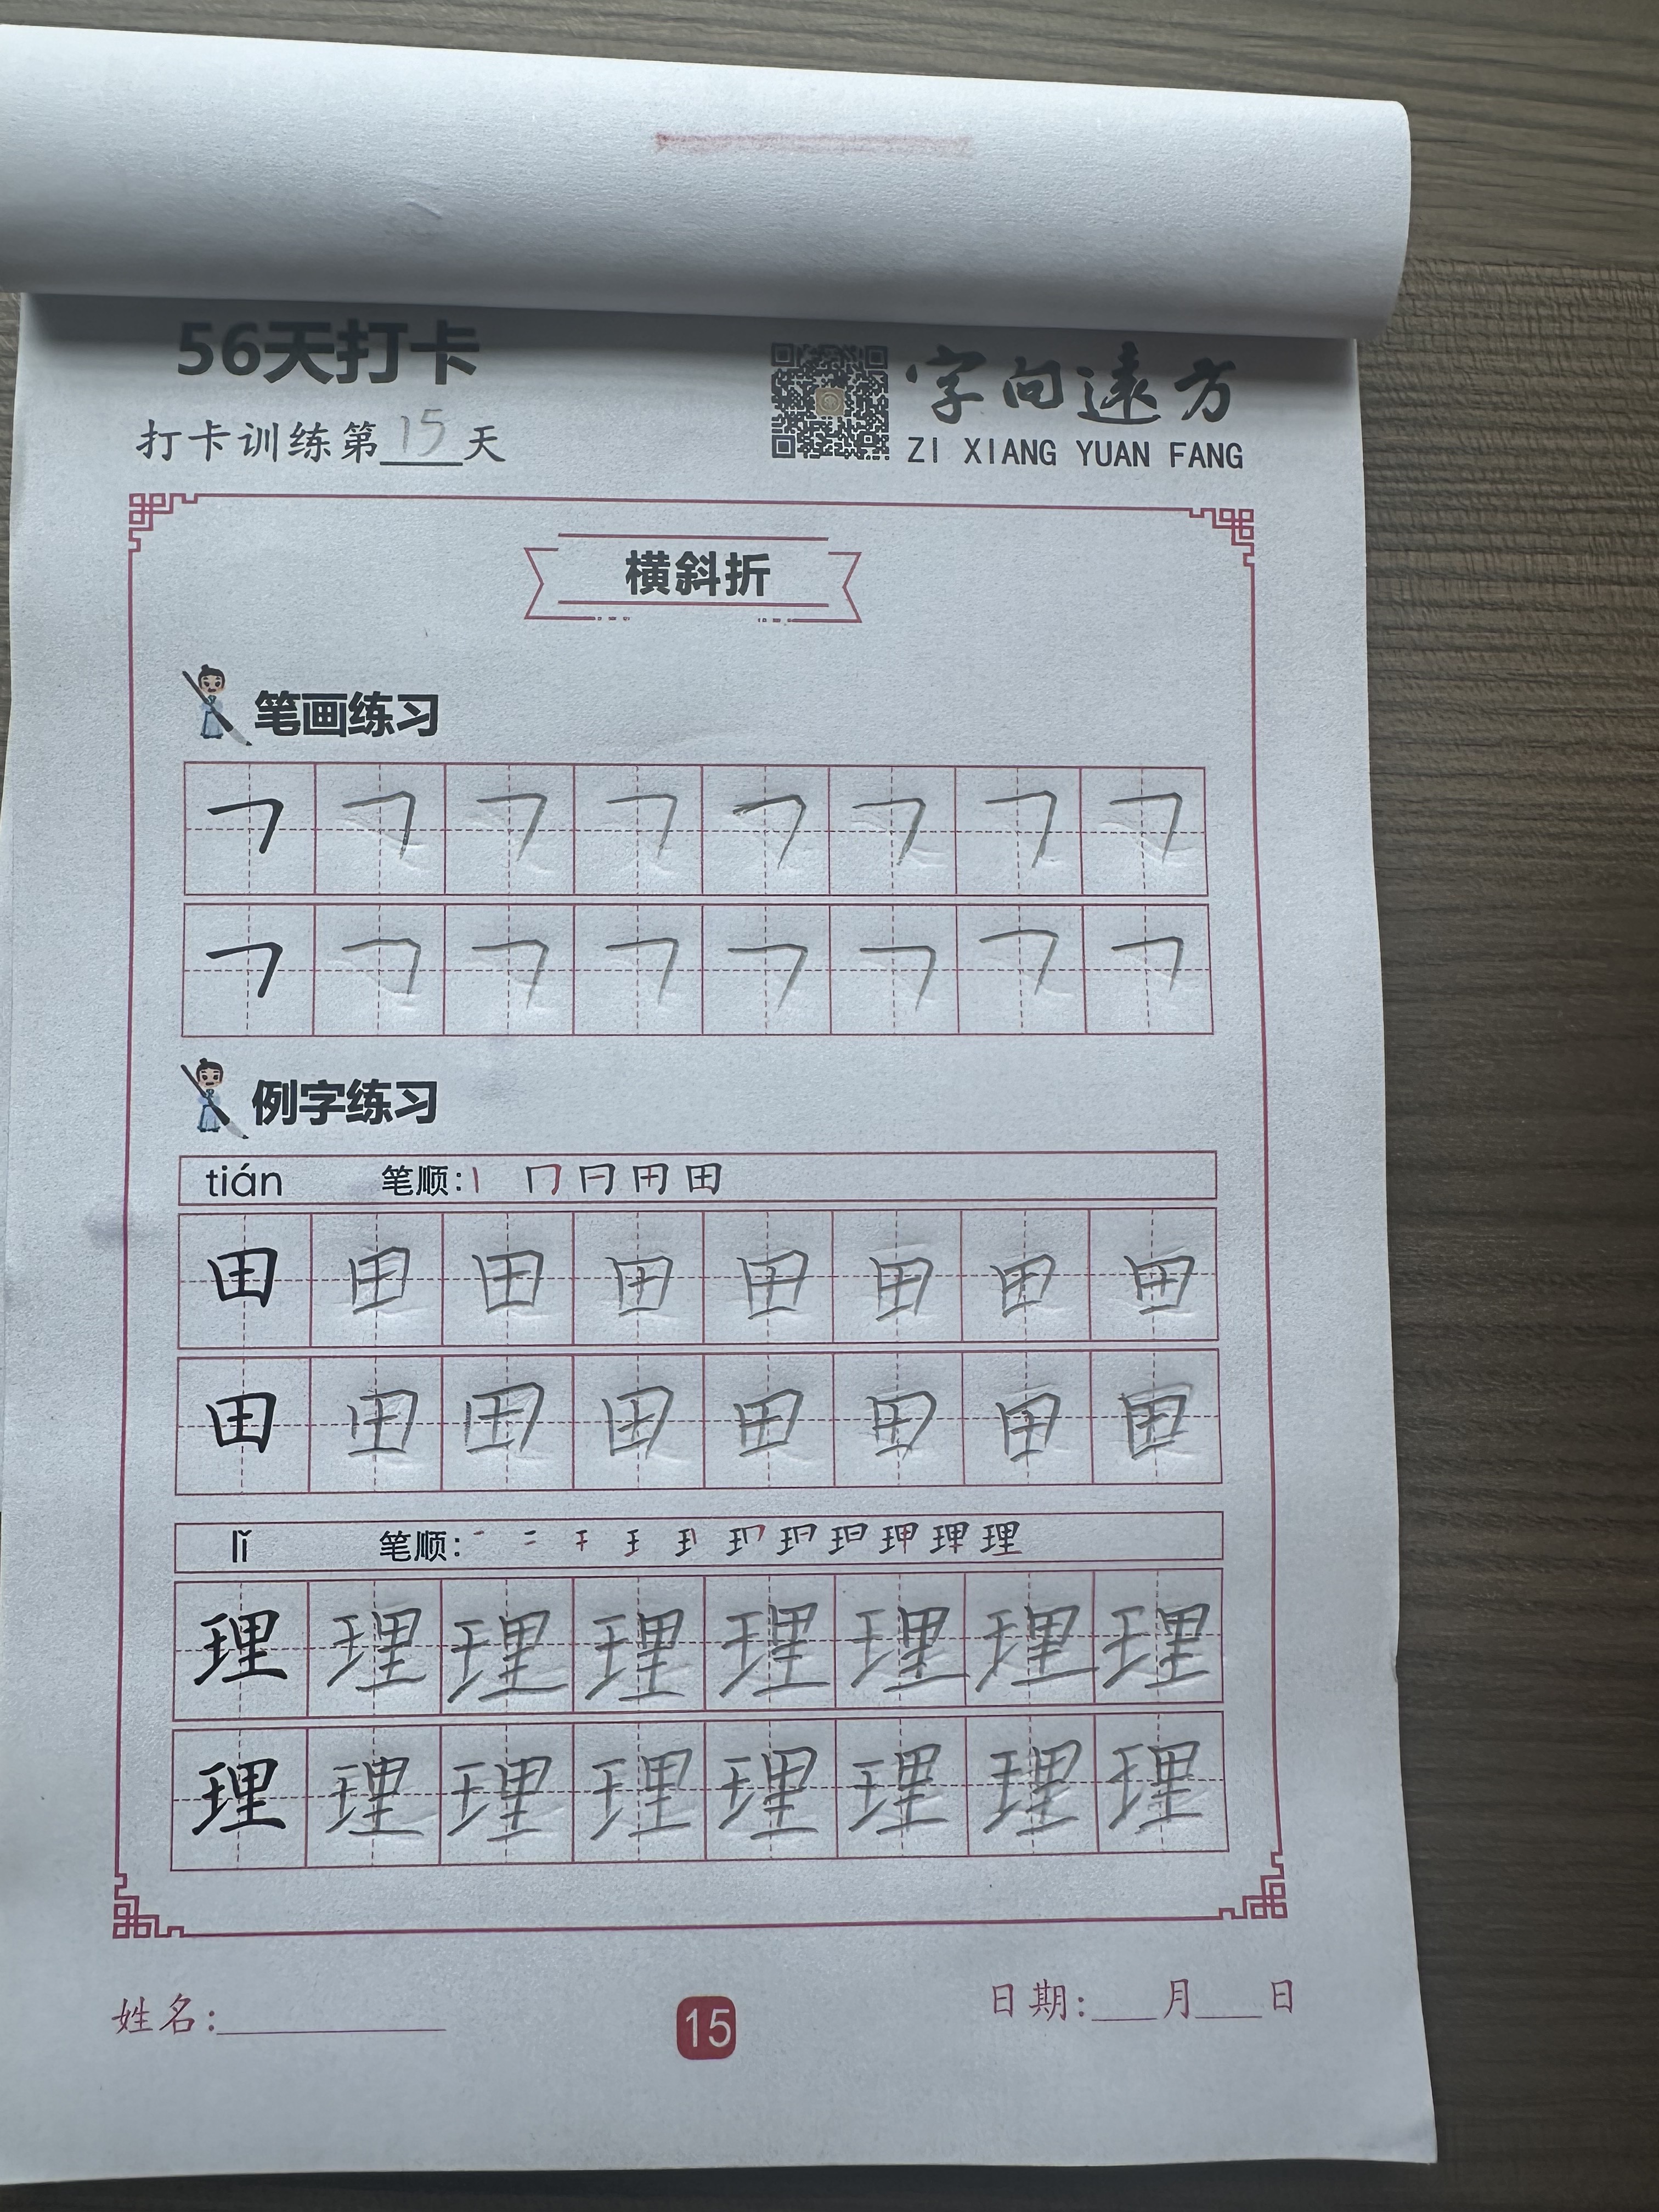 56天打卡
打卡训练第15天
字向遠方
ZI XIANG YUAN FANG
横斜折
笔画练习
㇕ ㇕ ㇕ ㇕ ㇕ ㇕ ㇕ ㇕
㇕ ㇕ ㇕ ㇕ ㇕ ㇕ ㇕ ㇕
例字练习
tián 笔顺: 丨 冂 冃 用 田
田 田 田 田 田 田 田 田
田 田 田 田 田 田 田 田
lǐ 笔顺: 理
理 理 理 理 理 理 理 理
理 理 理 理 理 理 理 理
姓名:
15
日期: 月 日